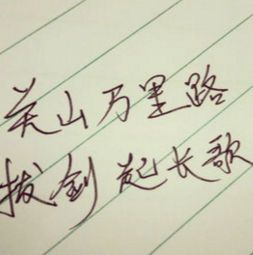 关山万里路
拔剑起长歌